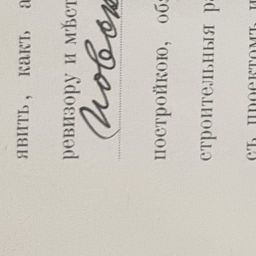 явить, какъ
ревизору и мѣст
постройкою, об
строительныя р
съ проектомъ